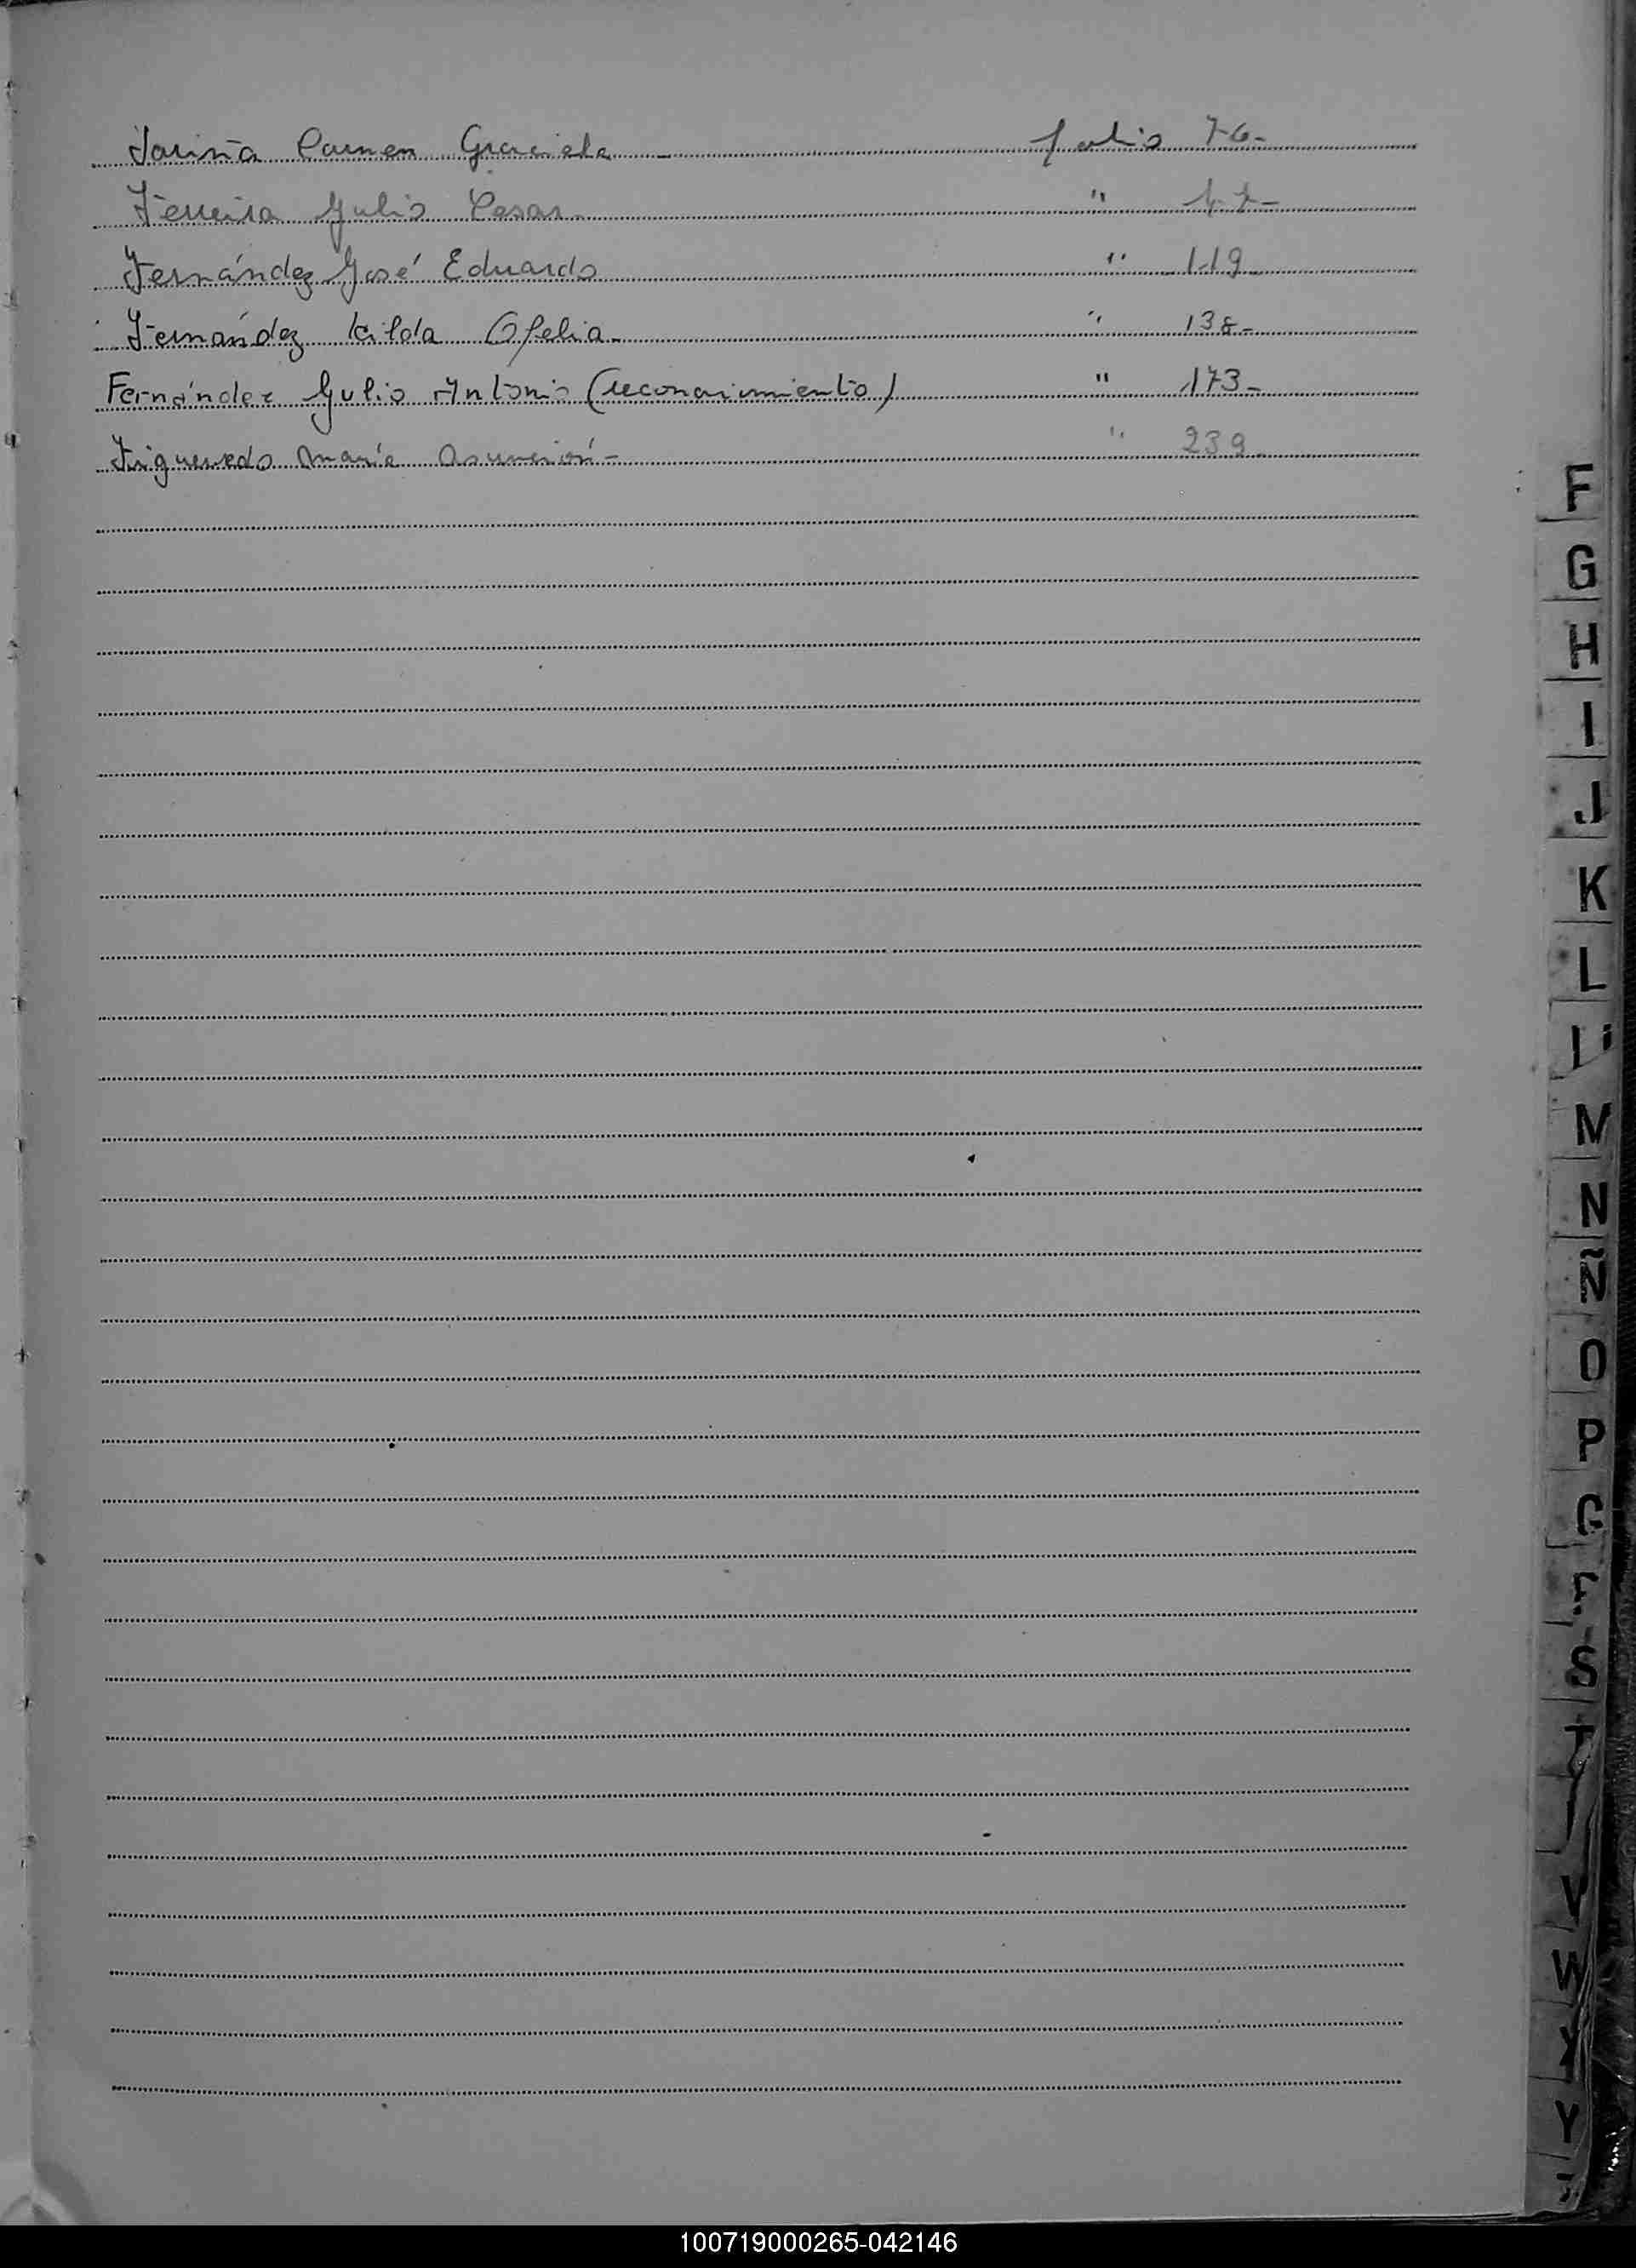 Fariña Carmen Graciela folio 76-
Ferreira Julio Cesar " 47-
Fernández José Eduardo " 119
Fernández Kilda Ofelia " 138-
Fernández Julio Antonio (reconocimiento) " 173-
Figueredo María Asunción- " 239
F
G
H
I
J
K
L
M
N
Ñ
O
P
S
T
V
W
Y
100719000265-042146